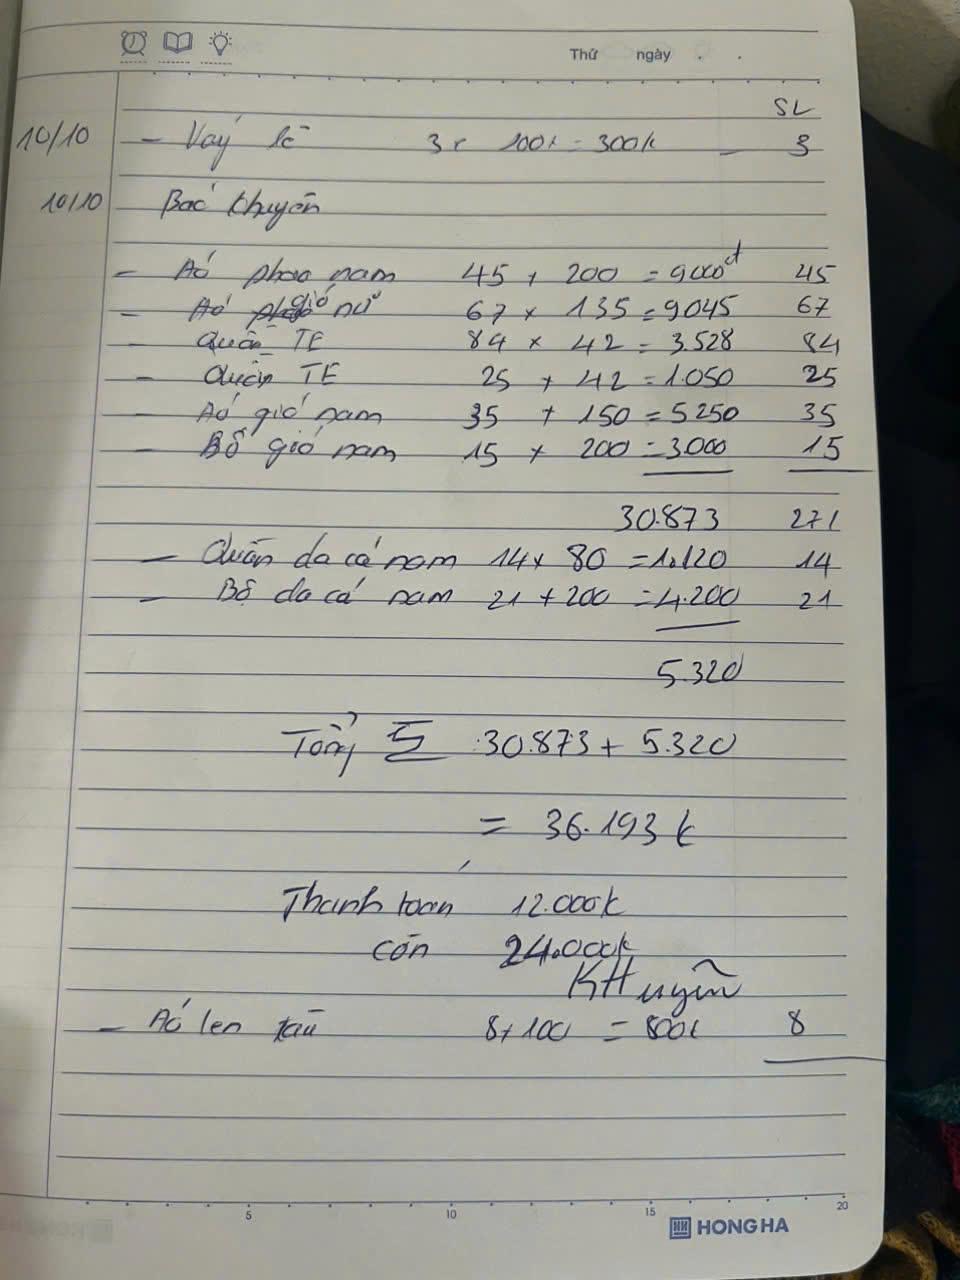 Thứ ngày
SL
10/10 - Váy lẻ 3 x 100k = 300k - 3
10/10 Bác Khuyên
- Áo phao nam 45 + 200 = 9000đ 45
- Áo gió nữ 67 x 135 = 9045 67
- Quần TE 84 x 42 = 3.528 84
- Quần TE 25 + 42 = 1.050 25
- Áo gió nam 35 + 150 = 5250 35
- Bộ gió nam 15 x 200 = 3.000 15
30.873 271
- Quần da cá nam 14 x 80 = 1.120 14
- Bộ da cá nam 21 + 200 = 4.200 21
5.320
Tổng Σ 30.873 + 5.320
= 36.193 k
Thanh toán 12.000k
còn 24.000k
KHuyên
- Áo len tàu 8 + 100 = 800k 8
5 10 15 20
HONG HA